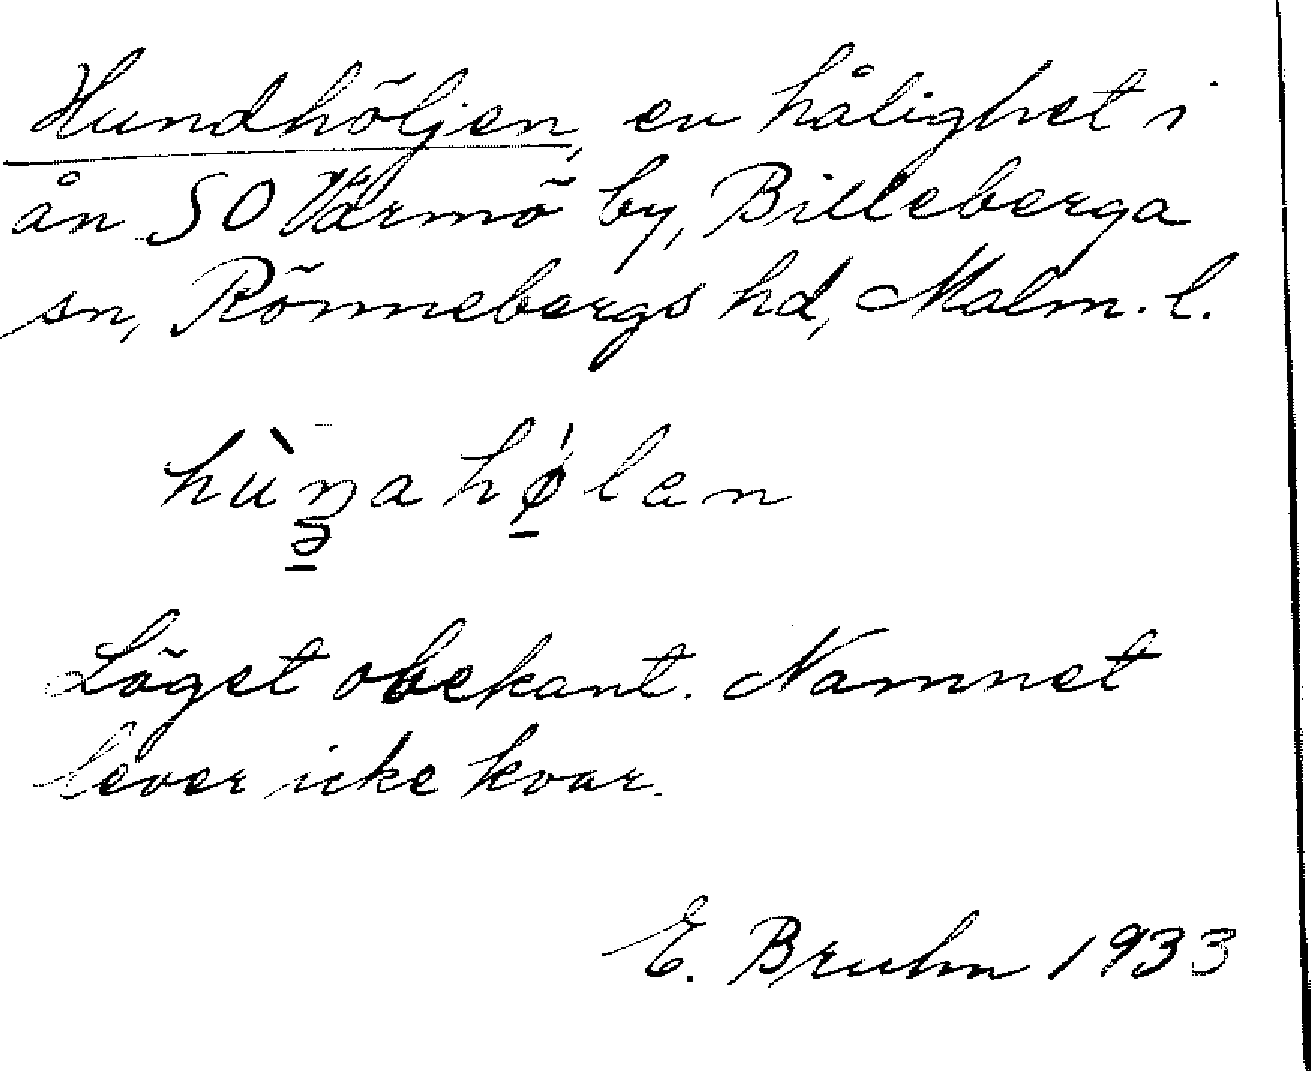 Hundhöljen, en hålighet i
ån SO Värmö by, Billeberga
sn, Rönnebergs hd, Malm. l.
hùnahø̱len
Läget obekant. Namnet
lever icke kvar.
E. Bruhn 1933